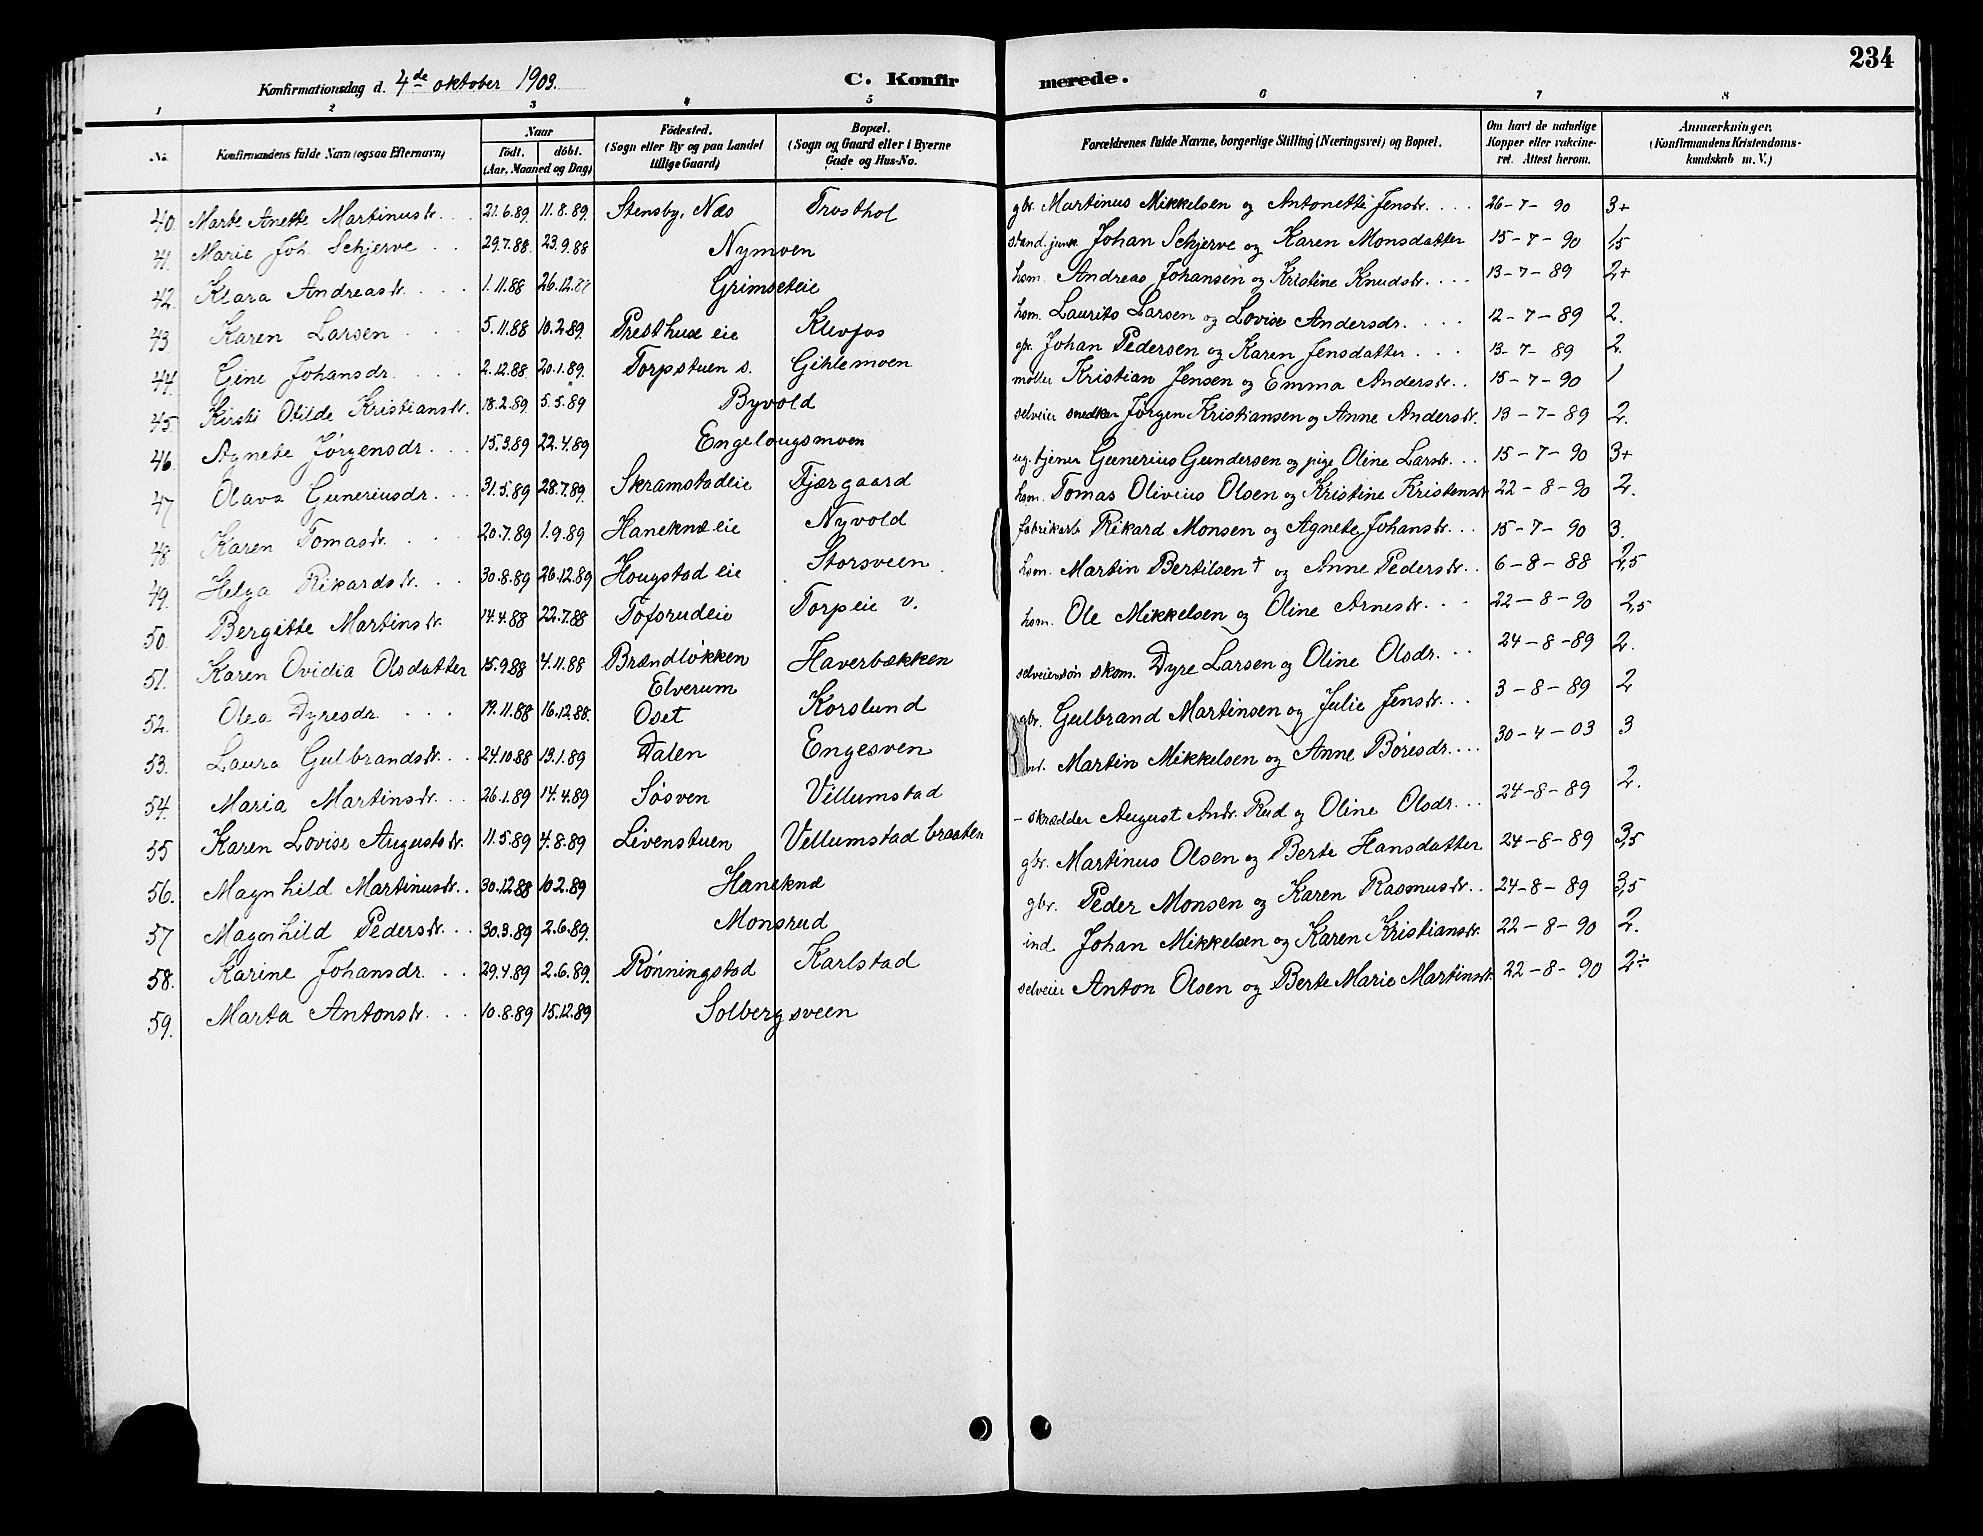 234
Konfirmationsdag d. 4de oktober 1903. C. Konfirmerede.
1 2 3 4 5 6 7 8
No. Konfirmandens fulde Navn (ogsaa Efternavn) Naar født. døbt. (Aar, Maaned og Dag) Fødested. (Sogn eller By og paa Landet tillige Gaard) Bopæl. (Sogn og Gaard eller i Byerne Gade og Hus-No. Forældrenes fulde Navne, borgerlige Stilling (Næringsvei) og Bopæl. Om havt de naturlige Kopper eller vakcineret. Attest herom. Anmærkninger. (Konfirmandens Kristendomskundskab m. V.)
40. Marte Anette Martinusdr. 21.6.89. 11.8.89. Stensby, Næs Trosthol gbr. Martinus Mikkelsen og Antonette Jensdr. 26-7-90 3+
41. Marie Joh. Schjerve 29.7.88. 23.9.88 Nymoen Johan Schjerve og Karen Monsdatter 15-7-90 1,5
42. Klara Andreasdr. 1.11.88 26.12.88 Grimseteie hsm. Andreas Johansen og Kristine Knudsdr. 13-7-89 2+
43. Karen Larsen 5.11.88 10.2.89. Presthus eie Klevfos hsm. Laurits Larsen og Lovise Andersdr. 12-7-89 2.
44. Gine Johansdr. 2.12.88 20.1.89. Torpstuen s. Gihlemoen Johan Pedersen og Karen Jensdatter 13-7-89 2.
45. Kirsti Otilde Kristiansdr. 18.2.89 5.5.89 Byvold møller Kristian Jensen og Emma Andersdr. 15-7-90 1
46. Agnete Jørgensdr. 15.3.89 22.4.89 Engelaugsmoen selveier snedker Jørgen Kristiansen og Anne Andersdr. 13-7-89 2.
47 Olava Guneriusdr. 31.5.89 28.7.89. Skramstadeie Fjærgaard ug. tjener Gunerius Gundersen og pige Oline Larsdr. 15-7-90 3+
48. Karen Tomasdr. 20.7.89 1.9.89 Haneknæ eie Nyvold hsm. Tomas Olivius Olsen og Kristine Kristensdr. 22-8-90 2.
49. Helga Rikardsdr. 30.8.89 26.12.89 Hougstad eie Storsveen fabrikarb. Rikard Monsen og Agnete Johansdr. 15-7-90 3.
50. Bergitte Martinsdr. 14.4.88 22.7.88 Tofsrudeie Torpeie v. hsm. Martin Bertilsen † og Anne Pedersdr. 6-8-88 2,5
51. Karen Ovidia Olsdatter 15.9.88 4.11.88 Brændløkken Haverbækken hsm. Ole Mikkelsen og Oline Arnesdr. 22-8-90 2,5
Elverum
52. Olea Dyresdr. 19.11.88 16.12.88. Oset Korslund selveiersøn skom. Dyre Larsen og Oline Olsdr. 24-8-89 2.
53. Laura Gulbrandsdr. 24.10.88 13.1.89 Dalen Engesven gbr. Gulbrand Martinsen og Julie Jensdr. 3-8-89 2
54. Maria Martinsdr. 26.1.89 14.4.89 Søsven Villumstad Martin Mikkelsen og Anne Børesdr. 30-4-03 3
55 Karen Lovise Augustsdr. 11.5.89 4.8.89 Livenstuen Vellumstad braaten - skrædder August Andr. Rud og Oline Olsdr. 24-8-89 2.
56. Magnhild Martinusdr. 30.12.88 10.2.89 Haneknæ gbr. Martinus Olsen og Berte Hansdatter 24-8-89 3,5
57 Magnhild Pedersdr. 30.3.89 2.6.89. Monsrud gbr. Peder Monsen og Karen Rasmusdr. 24-8-89 3,5
58. Karine Johansdr. 29.4.89 2.6.89. Rønningstad Karlstad ind. Johan Mikkelsen og Karen Kristiansdr. 22-8-90 2.
59. Marta Antonsdr. 10.8.89 15.12.89 Solbergsveen selveier Anton Olsen og Berte Marie Martinsdr. 22-8-90 2÷